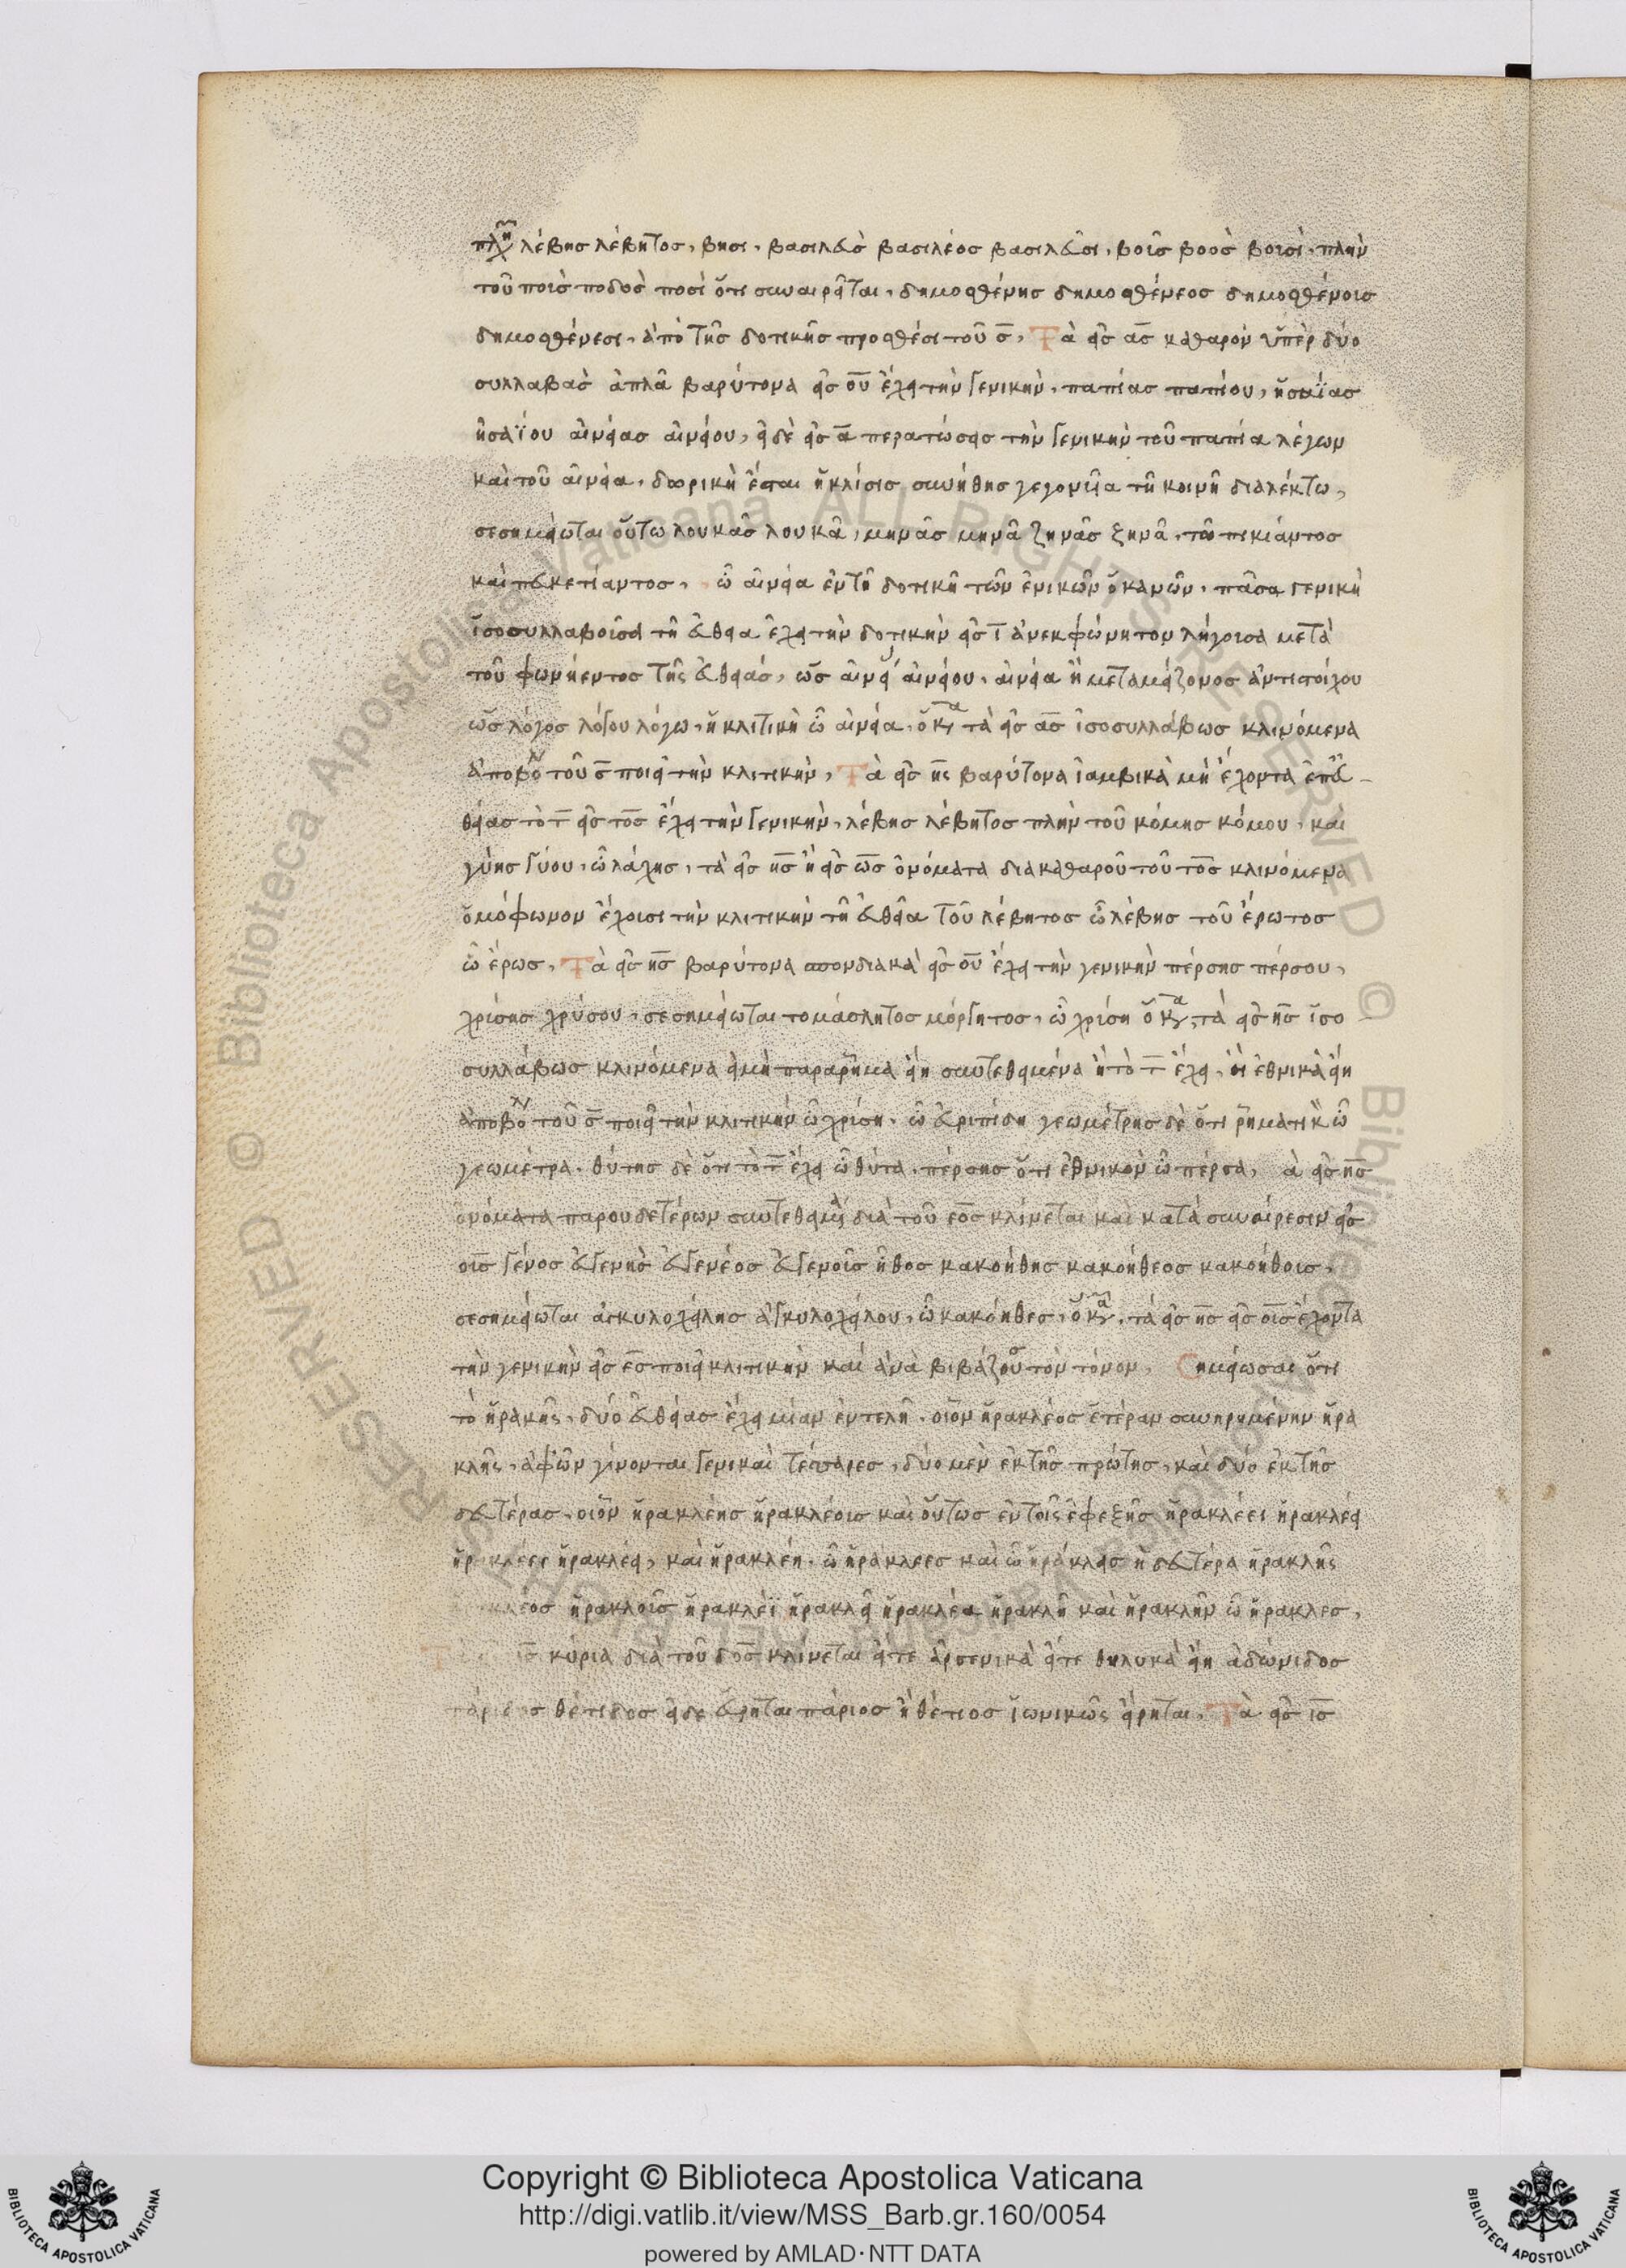 λέβης λέβητος, βησι, βασιλεὺς βασιλέος βασιλεῦσι, βοῦς βοὸς βουσὶ, πλὴν
τοῦ ποὺς ποδὸς ποσὶ ὅτι συναιρεῖται, δημοσθένης δημοσθένεος δημοσθένους
δημοσθένεσι, ἀπὸ τῆς δοτικῆς προσθέσει τοῦ σ̅, Τὰ εἰς ας̅ καθαρὸν ὑπὲρ δύο
συλλαβὰς ἁπλᾶ βαρύτονα εἰς ου̅ ἔχει τὴν γενικὴν, παπίας παπίου, ἡσαΐας
ἡσαΐου αἰνείας αἰνείου, εἰ δὲ εἰς α̅ περατώσεις τὴν γενικὴν τοῦ παπία λέγων
καὶ τοῦ αἰνεία, δωρικὴ ἔσται ἡ κλίσις συνήθης γεγονυῖα τῇ κοινῇ διαλέκτω,
σεσημείωται οὕτω λουκᾶς λουκᾶ, μηνᾶς μηνᾶ ζηνᾶς ξηνᾶ,
καὶ ὦ αἰνεία ἐν τῇ δοτικῇ τῶν ἑνικῶν ὁ κανών, πᾶσα γενικὴ
ἰσοσυλλαβοῦσα τῇ εὐθεία ἔχει τὴν δοτικὴν εἰς ι̅ ἀνεκφώνητον λήγουσα μετὰ
τοῦ φωνήεντος τῆς εὐθείας, ὡς αἰνεί αἰνείου, αἰνεία ἢ μεταμείζονος ἀντιστοίχου
ὡς λόγος λόγου λόγω, ἡ κλιτικὴ ὦ αἰνεία, τὰ εἰς ας̅ ἰσοσυλλάβως κλινόμενα
ἀποβολ τοῦ σ̅ ποιεῖ τὴν κλιτικὴν, Τὰ εἰς ης̅ βαρύτονα ἰαμβικὰ μὴ ἔχοντα ἐπ εὐ
θείας τὸ τ̅ εἰς τος̅ ἔχει τὴν γενικὴν, λέβης λέβητος πλὴν τοῦ κόμης κόμου, καὶ
γύης γύου, ὦ λάχης, τὰ εἰς ης̅ ἢ εἰς ως̅ ὀνόματα διὰ καθαροῦ τοῦ τος̅ κλινόμενα
ὁμόφωνον ἔχουσι τὴν κλιτικὴν τῇ εὐθεία τοῦ λέβητος ὦ λέβης τοῦ ἔρωτος
ὦ ἔρως, Τὰ εἰς ης̅ βαρύτονα σπονδιακὰ εἰς ου̅ ἔχει τὴν γενικὴν πέρσης πέρσου,
χρύσης χρύσου, σεσημείωται τὸ μάσλητος μόργητος, ὦ χρύση τὰ εἰς ης̅ ἰσο
συλλάβως κλινόμενα εἰ μὴ παραρῆμα εἴη συντεθειμένα ἢ τὸ τ̅ ἔχει, ἢ ἐθνικὰ εἴη
ἀποβολ τοῦ σ̅ ποιεῖ τὴν κλιτικὴν ὦ χρύση, ὦ εὐριπίδη γεωμέτρης δὲ ὅτι ῥηματικ ὦ
γεωμέτρα, θύτης δὲ ὅτι τὸ τ̅ ἔχει ὦ θύτα, πέρσης ὅτι ἐθνικὸν ὦ πέρσα, ὰ εἰς ης̅
ὀνόματα παρ' οὐδετέρων συντεθειμ διὰ τοῦ εος̅ κλίνεται καὶ κατὰ συναίρεσιν εἰς
ους̅ γένος εὐγενὴς εὐγενέος εὐγενοῦς ἦθος κακοήθης κακοήθεος κακοήθους,
σεσημείωται ἀγκυλοχείλης ἀγκυλοχείλου, ὦ κακόηθες, τὰ εἰς ης̅ εἰς ους̅ ἔχοντα
τὴν γενικὴν εἰς ες̅ ποιεῖ κλιτικὴν καὶ ἀναβιβάζου τὸν τόνον, Σημείωσαι ὅτι
τὸ ἡρακῆς, δύο εὐθείας ἔχει μίαν ἐντελῆ, οἷον ἡρακλέος ἑτέραν συνηρημένην ἡρα
κλῆς, ἀφ' ὧν γίνονται γενικαὶ τέσσαρες, δύο μὲν ἐκ τῆς πρώτης, καὶ δύο ἐκ τῆς
δευτέρας, οἷον ἡρακλέης ἡρακλέους καὶ οὕτως ἐν τοῖς ἐφεξῆς ἡρακλέει ἡρακλέει
ἡρακλέεϊ ἡρακλέει, καὶ ἡρακλέη, ὦ ἡράκλεες καὶ ὦ ἡράκλεις ἡ δευτέρα ἡρακλῆς
κλέος ἡρακλοῦς ἡρακλέϊ ἡρακλεῖ ἡρακλέα ἡρακλῆ καὶ ἡρακλῆν ὦ ἥρακλες,
Τὰ ις̅ κύρια διὰ τοῦ δος̅ κλίνεται εἴτε ἀρσενικὰ εἴτε θηλυκὰ εἴη ἀδώνιδος
πάριδος θέτιδος εἰ δὲ εὕρηται πάριος ἢ θέτιος ἰωνικῶς εἴρηται, Τὰ εἰς ις̅
Copyright © Biblioteca Apostolica Vaticana
http://digi.vatlib.it/view/MSS_Barb.gr.160/0054
powered by AMLAD·NTT DATA